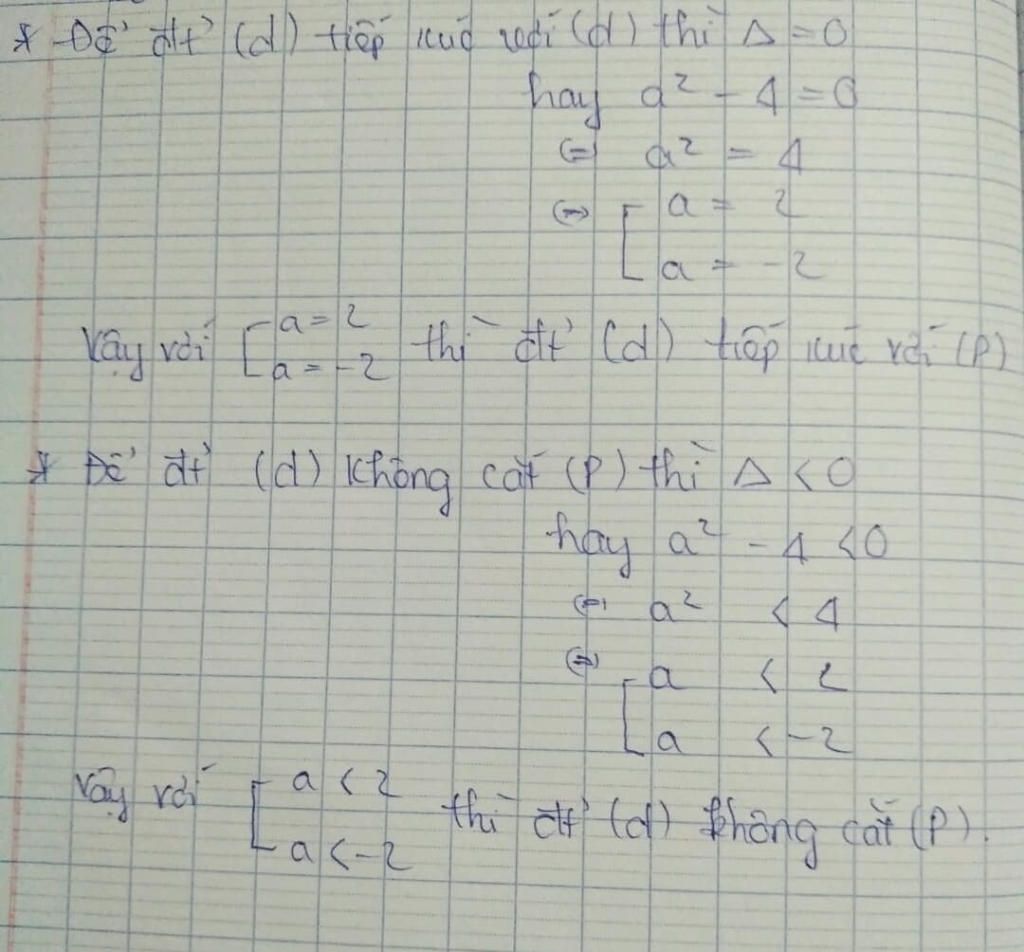 * Để đt' (d) tiếp xúc với (d) thì Δ = 0
hay a² - 4 = 0
⇔ a² = 4
⇔ [ a = 2
[ a = -2
Vậy với [ a = 2 thì đt' (d) tiếp xúc với (P)
[ a = -2
* Để đt' (d) không cắt (P) thì Δ < 0
hay a² - 4 < 0
⇔ a² < 4
⇔ [ a < 2
[ a < -2
Vậy với [ a < 2 thì đt' (d) không cắt (P).
[ a < -2